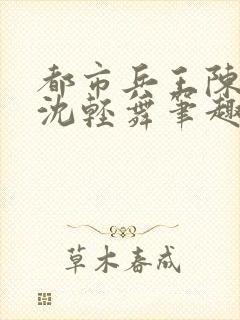 都市兵王陳
沈輕舞筆趣
草木春成